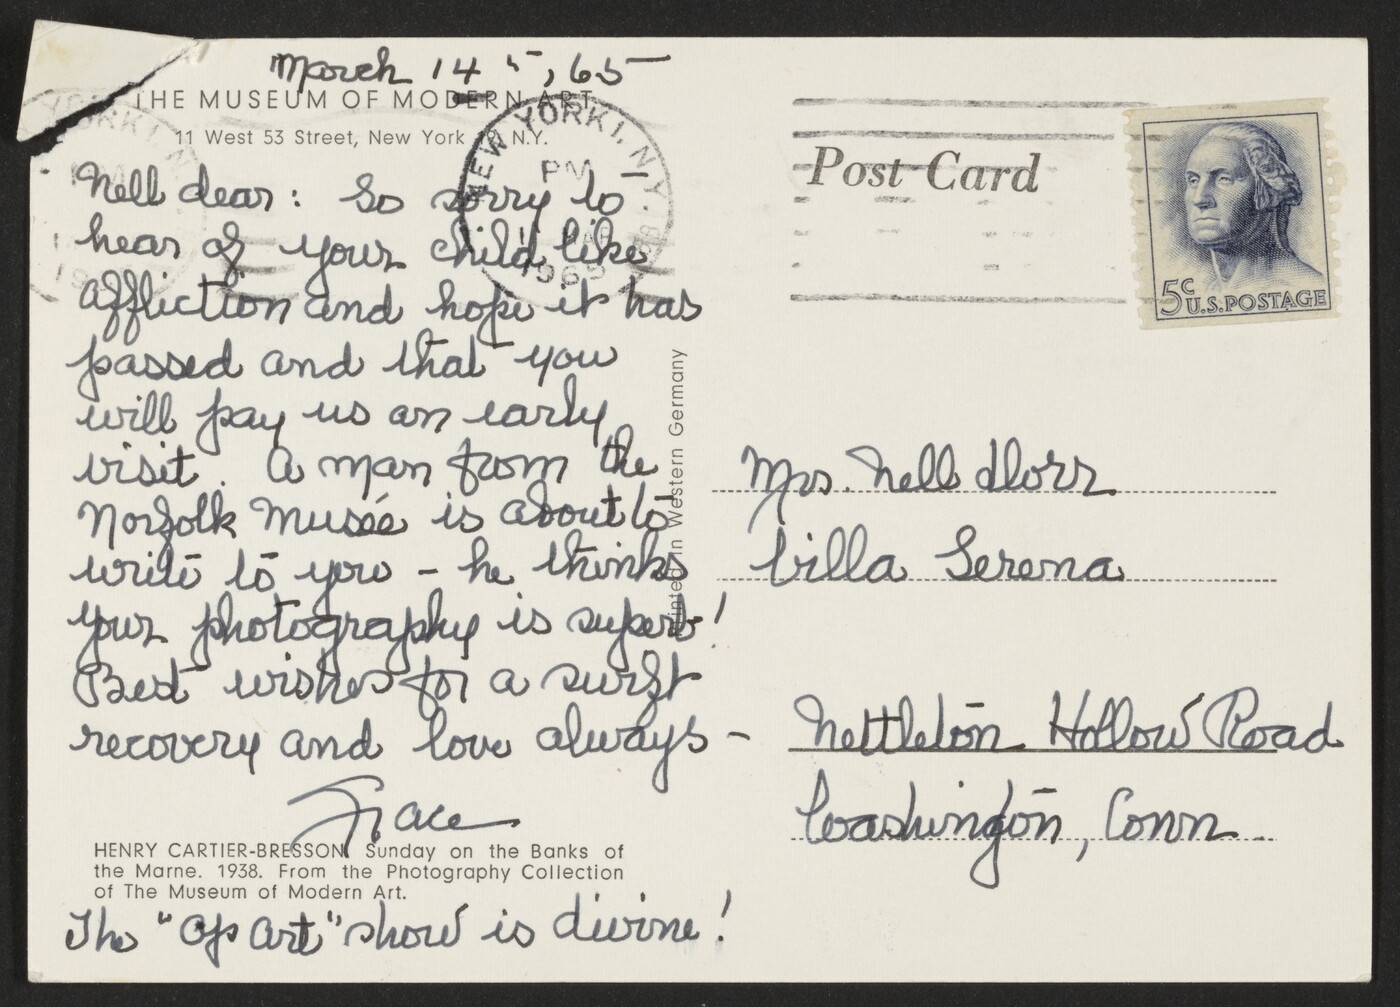 March 14, '65
THE MUSEUM OF MODERN ART
11 West 53 Street, New York 19, N.Y.
NEW YORK 1, N.Y.
PM
MAR
1965
Nell dear: So sorry to
hear of your child like
affliction and hope it has
passed and that you
will pay us an early
visit. A man from the
Norfolk Musée is about to
write to you – he thinks
your photography is superb!
Best wishes for a swift
recovery and love always –
Grace
HENRY CARTIER-BRESSON. Sunday on the Banks of
the Marne. 1938. From the Photography Collection
of The Museum of Modern Art.
The "Op Art" show is divine!
Printed in Western Germany
Post Card
5c U.S. POSTAGE
Mrs. Nell Dorr
Villa Serena
Nettleton Hollow Road
Washington, Conn.